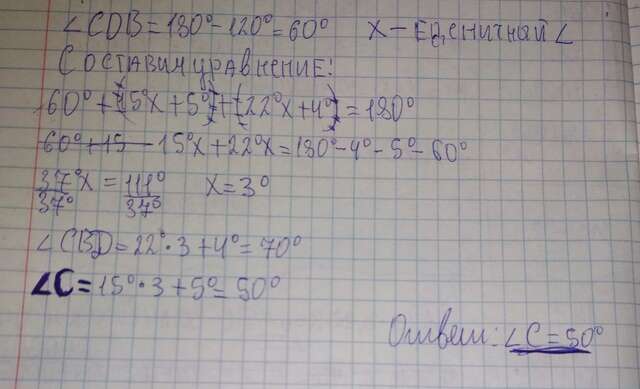 ∠CDB = 180° - 120° = 60° x - Единичный ∠
Составим уравнение:
60° + (15°x + 5°) + (22°x + 4°) = 180°
60° + 15 15°x + 22°x = 180° - 4° - 5° - 60°
37°x/37° = 111°/37° x = 3°
∠CBD = 22° · 3 + 4° = 70°
∠C = 15° · 3 + 5° = 50°
Ответ: ∠C = 50°